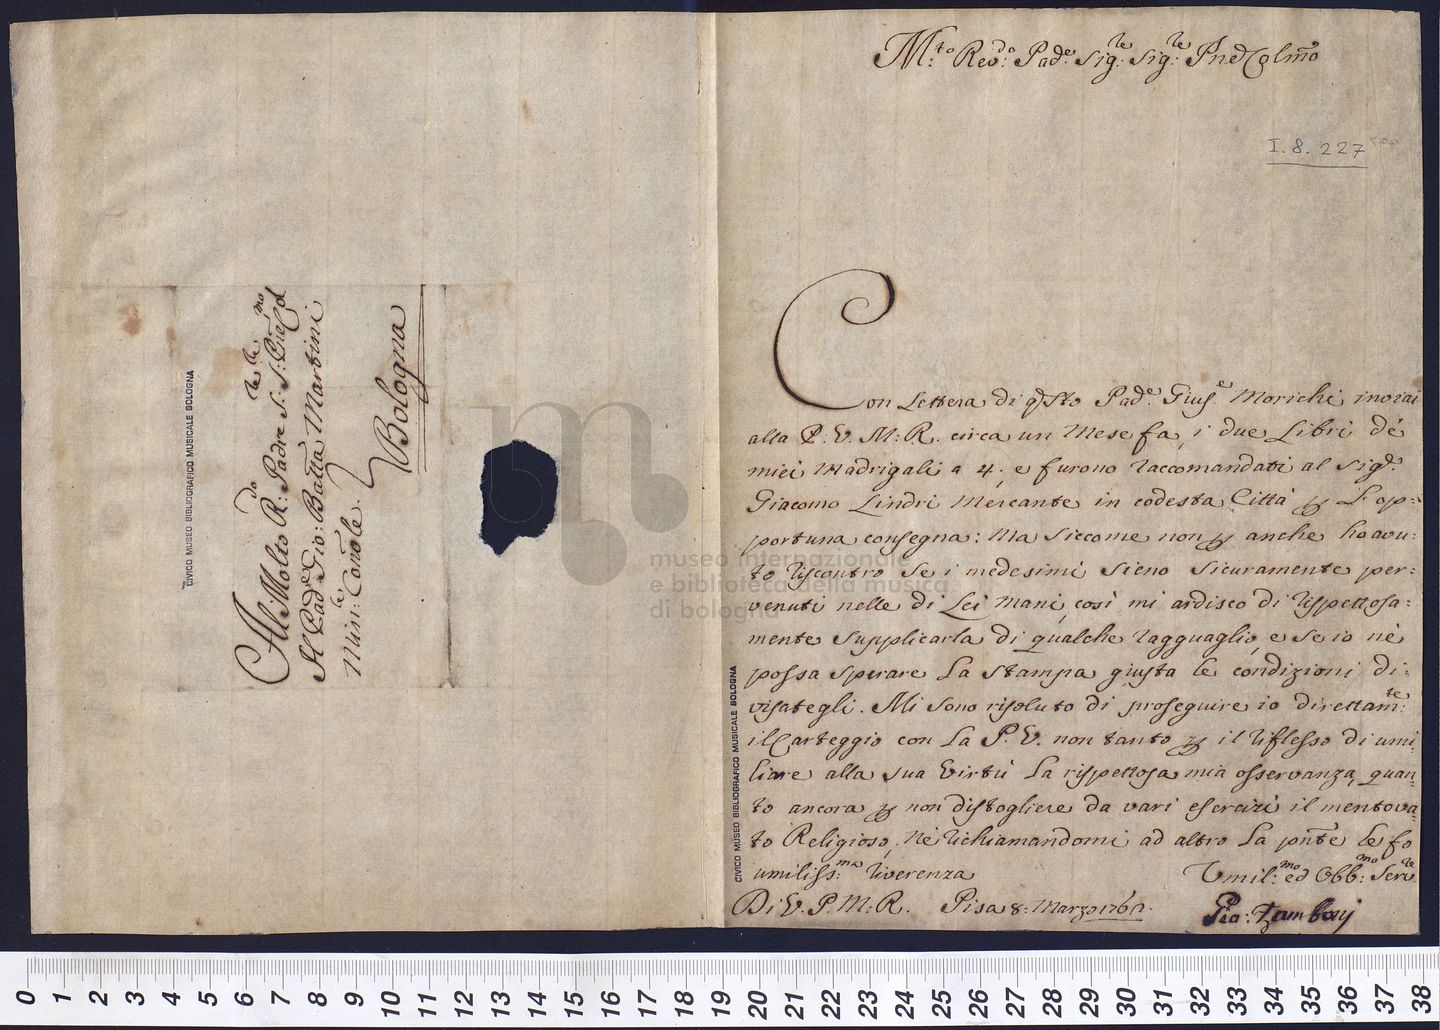 Al Molto R:do Padre S:re S:re P.
Il Padre Gio: Batta Martini
Min:le Conv.le
Bologna
CIVICO MUSEO BIBLIOGRAFICO MUSICALE BOLOGNA
M:to Rev:do Pad:e Sig:re Sig:re Pne Colmo
I. 8. 227
Con Lettera di qsto Pad:e Gius:e Morichi, inviai
alla P. V. M. R. circa un Mese fa, i due Libri dè
miei Madrigali a 4; e furono raccomandati al Sig:r
Giacomo Lindri Mercante in codesta Città p L'op=
portuna consegna: Ma siccome non p anche ho avu=
to riscontro se i medesimi sieno sicuramente per=
venuti nelle di Lei mani, così mi ardisco di rispettosa=
mente supplicarla di qualche ragguaglio, e se io nè
possa sperare la stampa giusta le condizioni di=
visategli. Mi sono risoluto di proseguire io direttam:te
il Carteggio con la P. V. non tanto p il riflesso di umi=
liare alla sua Virtù la rispettosa mia osservanza, quan=
to ancora p non distogliere da varj esercizi il mentova=
to Religioso, nè richiamandomi ad altro la pnte le fo
umiliss:ma riverenza
Umil:mo ed Obb:mo Serv:re
Di V. P. M: R. Pisa 8: Marzo 176
CIVICO MUSEO BIBLIOGRAFICO MUSICALE BOLOGNA
museo internazionale
e biblioteca della musica
di bologna
0 1 2 3 4 5 6 7 8 9 10 11 12 13 14 15 16 17 18 19 20 21 22 23 24 25 26 27 28 29 30 31 32 33 34 35 36 37 38